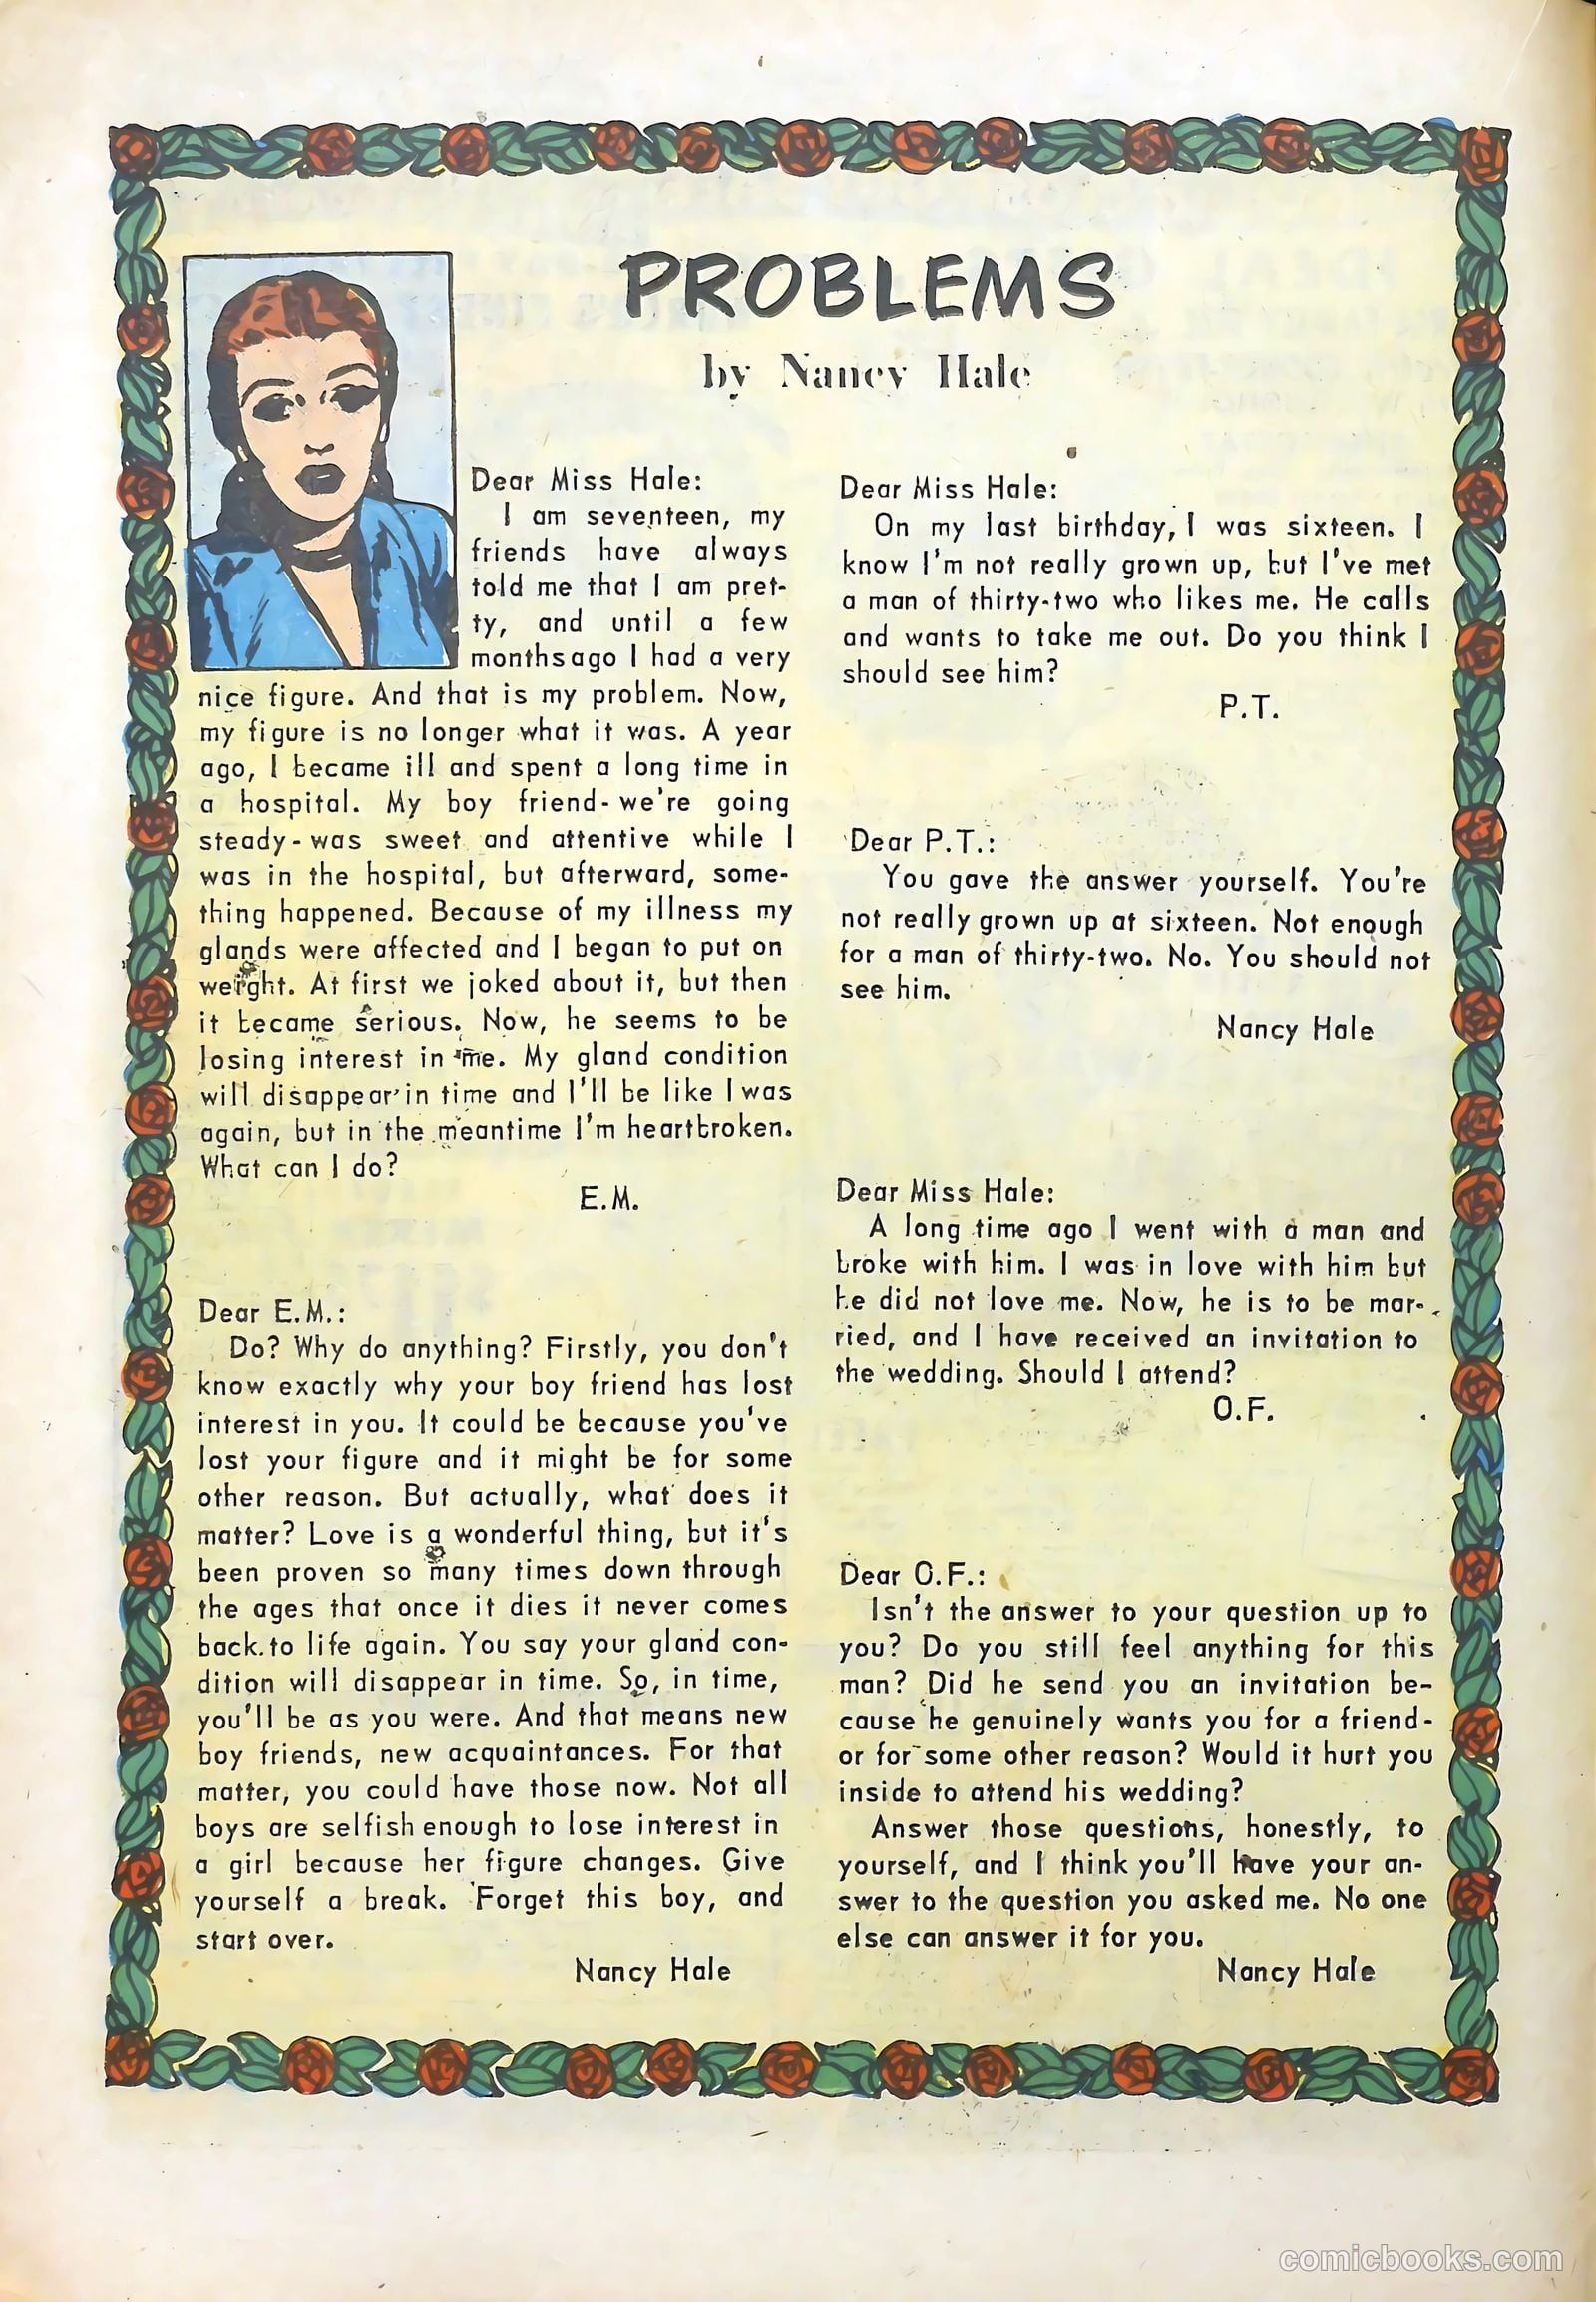 PROBLEMS
by Nancy Hale
Dear Miss Hale:
I am seventeen, my
friends have always
told me that I am pret-
ty, and until a few
months ago I had a very
nice figure. And that is my problem. Now,
my figure is no longer what it was. A year
ago, I became ill and spent a long time in
a hospital. My boy friend-we're going
steady-was sweet and attentive while I
was in the hospital, but afterward, some-
thing happened. Because of my illness my
glands were affected and I began to put on
weight. At first we joked about it, but then
it became serious. Now, he seems to be
losing interest in me. My gland condition
will disappear in time and I'll be like I was
again, but in the meantime I'm heartbroken.
What can I do?
E.M.
Dear E.M.:
Do? Why do anything? Firstly, you don't
know exactly why your boy friend has lost
interest in you. It could be because you've
lost your figure and it might be for some
other reason. But actually, what does it
matter? Love is a wonderful thing, but it's
been proven so many times down through
the ages that once it dies it never comes
back to life again. You say your gland con-
dition will disappear in time. So, in time,
you'll be as you were. And that means new
boy friends, new acquaintances. For that
matter, you could have those now. Not all
boys are selfish enough to lose interest in
a girl because her figure changes. Give
yourself a break. Forget this boy, and
start over.
Nancy Hale
Dear Miss Hale:
On my last birthday, I was sixteen. I
know I'm not really grown up, but I've met
a man of thirty-two who likes me. He calls
and wants to take me out. Do you think I
should see him?
P.T.
Dear P.T.:
You gave the answer yourself. You're
not really grown up at sixteen. Not enough
for a man of thirty-two. No. You should not
see him.
Nancy Hale
Dear Miss Hale:
A long time ago I went with a man and
broke with him. I was in love with him but
he did not love me. Now, he is to be mar-
ried, and I have received an invitation to
the wedding. Should I attend?
O.F.
Dear O.F.:
Isn't the answer to your question up to
you? Do you still feel anything for this
man? Did he send you an invitation be-
cause he genuinely wants you for a friend-
or for some other reason? Would it hurt you
inside to attend his wedding?
Answer those questions, honestly, to
yourself, and I think you'll have your an-
swer to the question you asked me. No one
else can answer it for you.
Nancy Hale
comicbooks.com